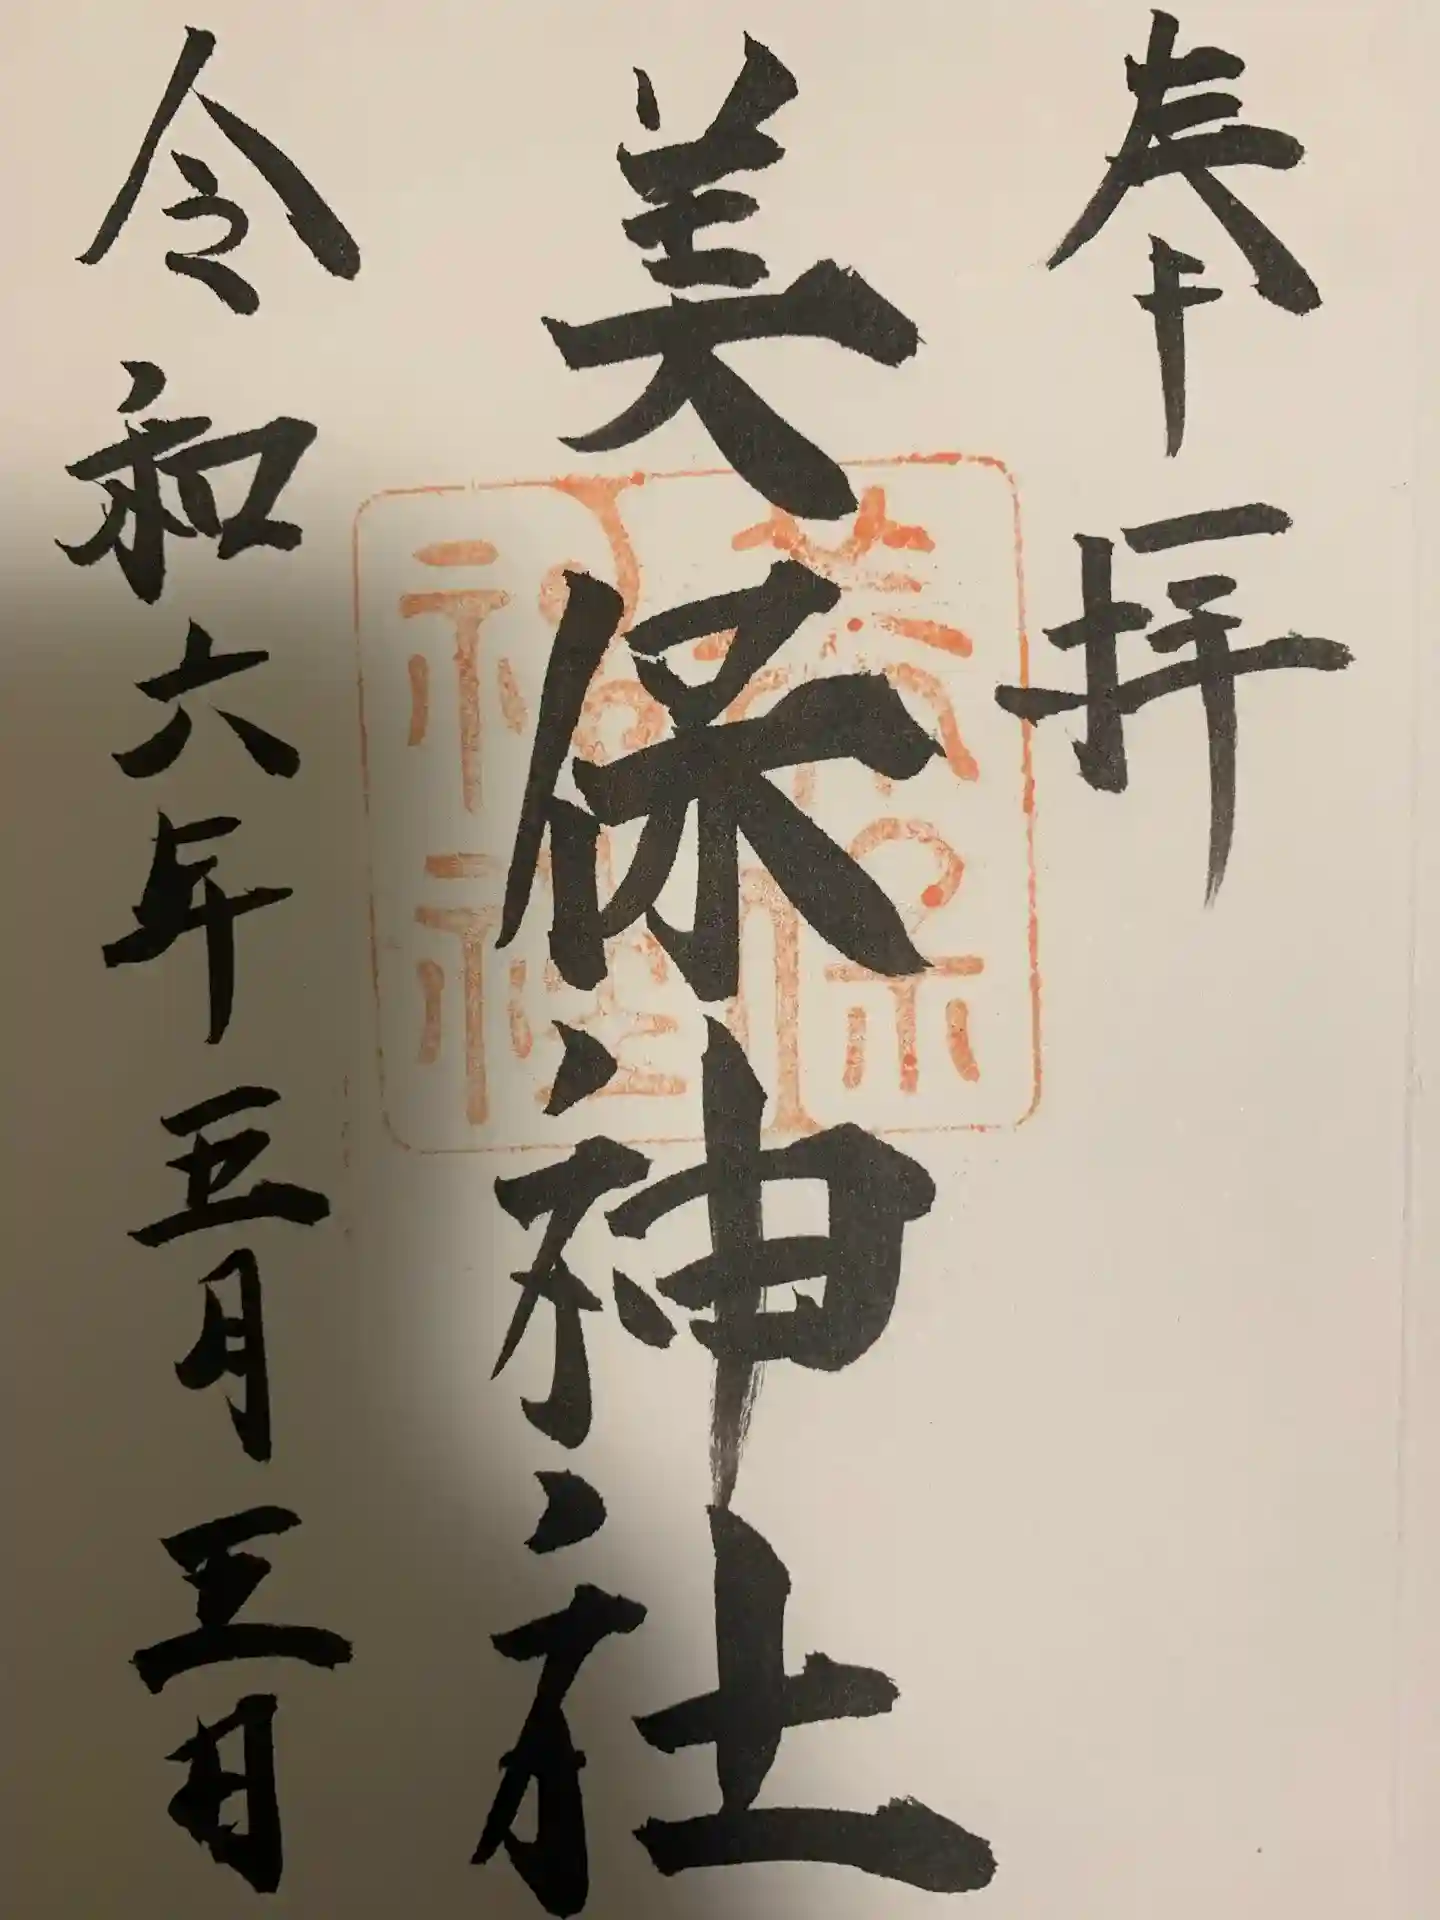 奉拝
美保神社
美保神社
令和六年五月三日